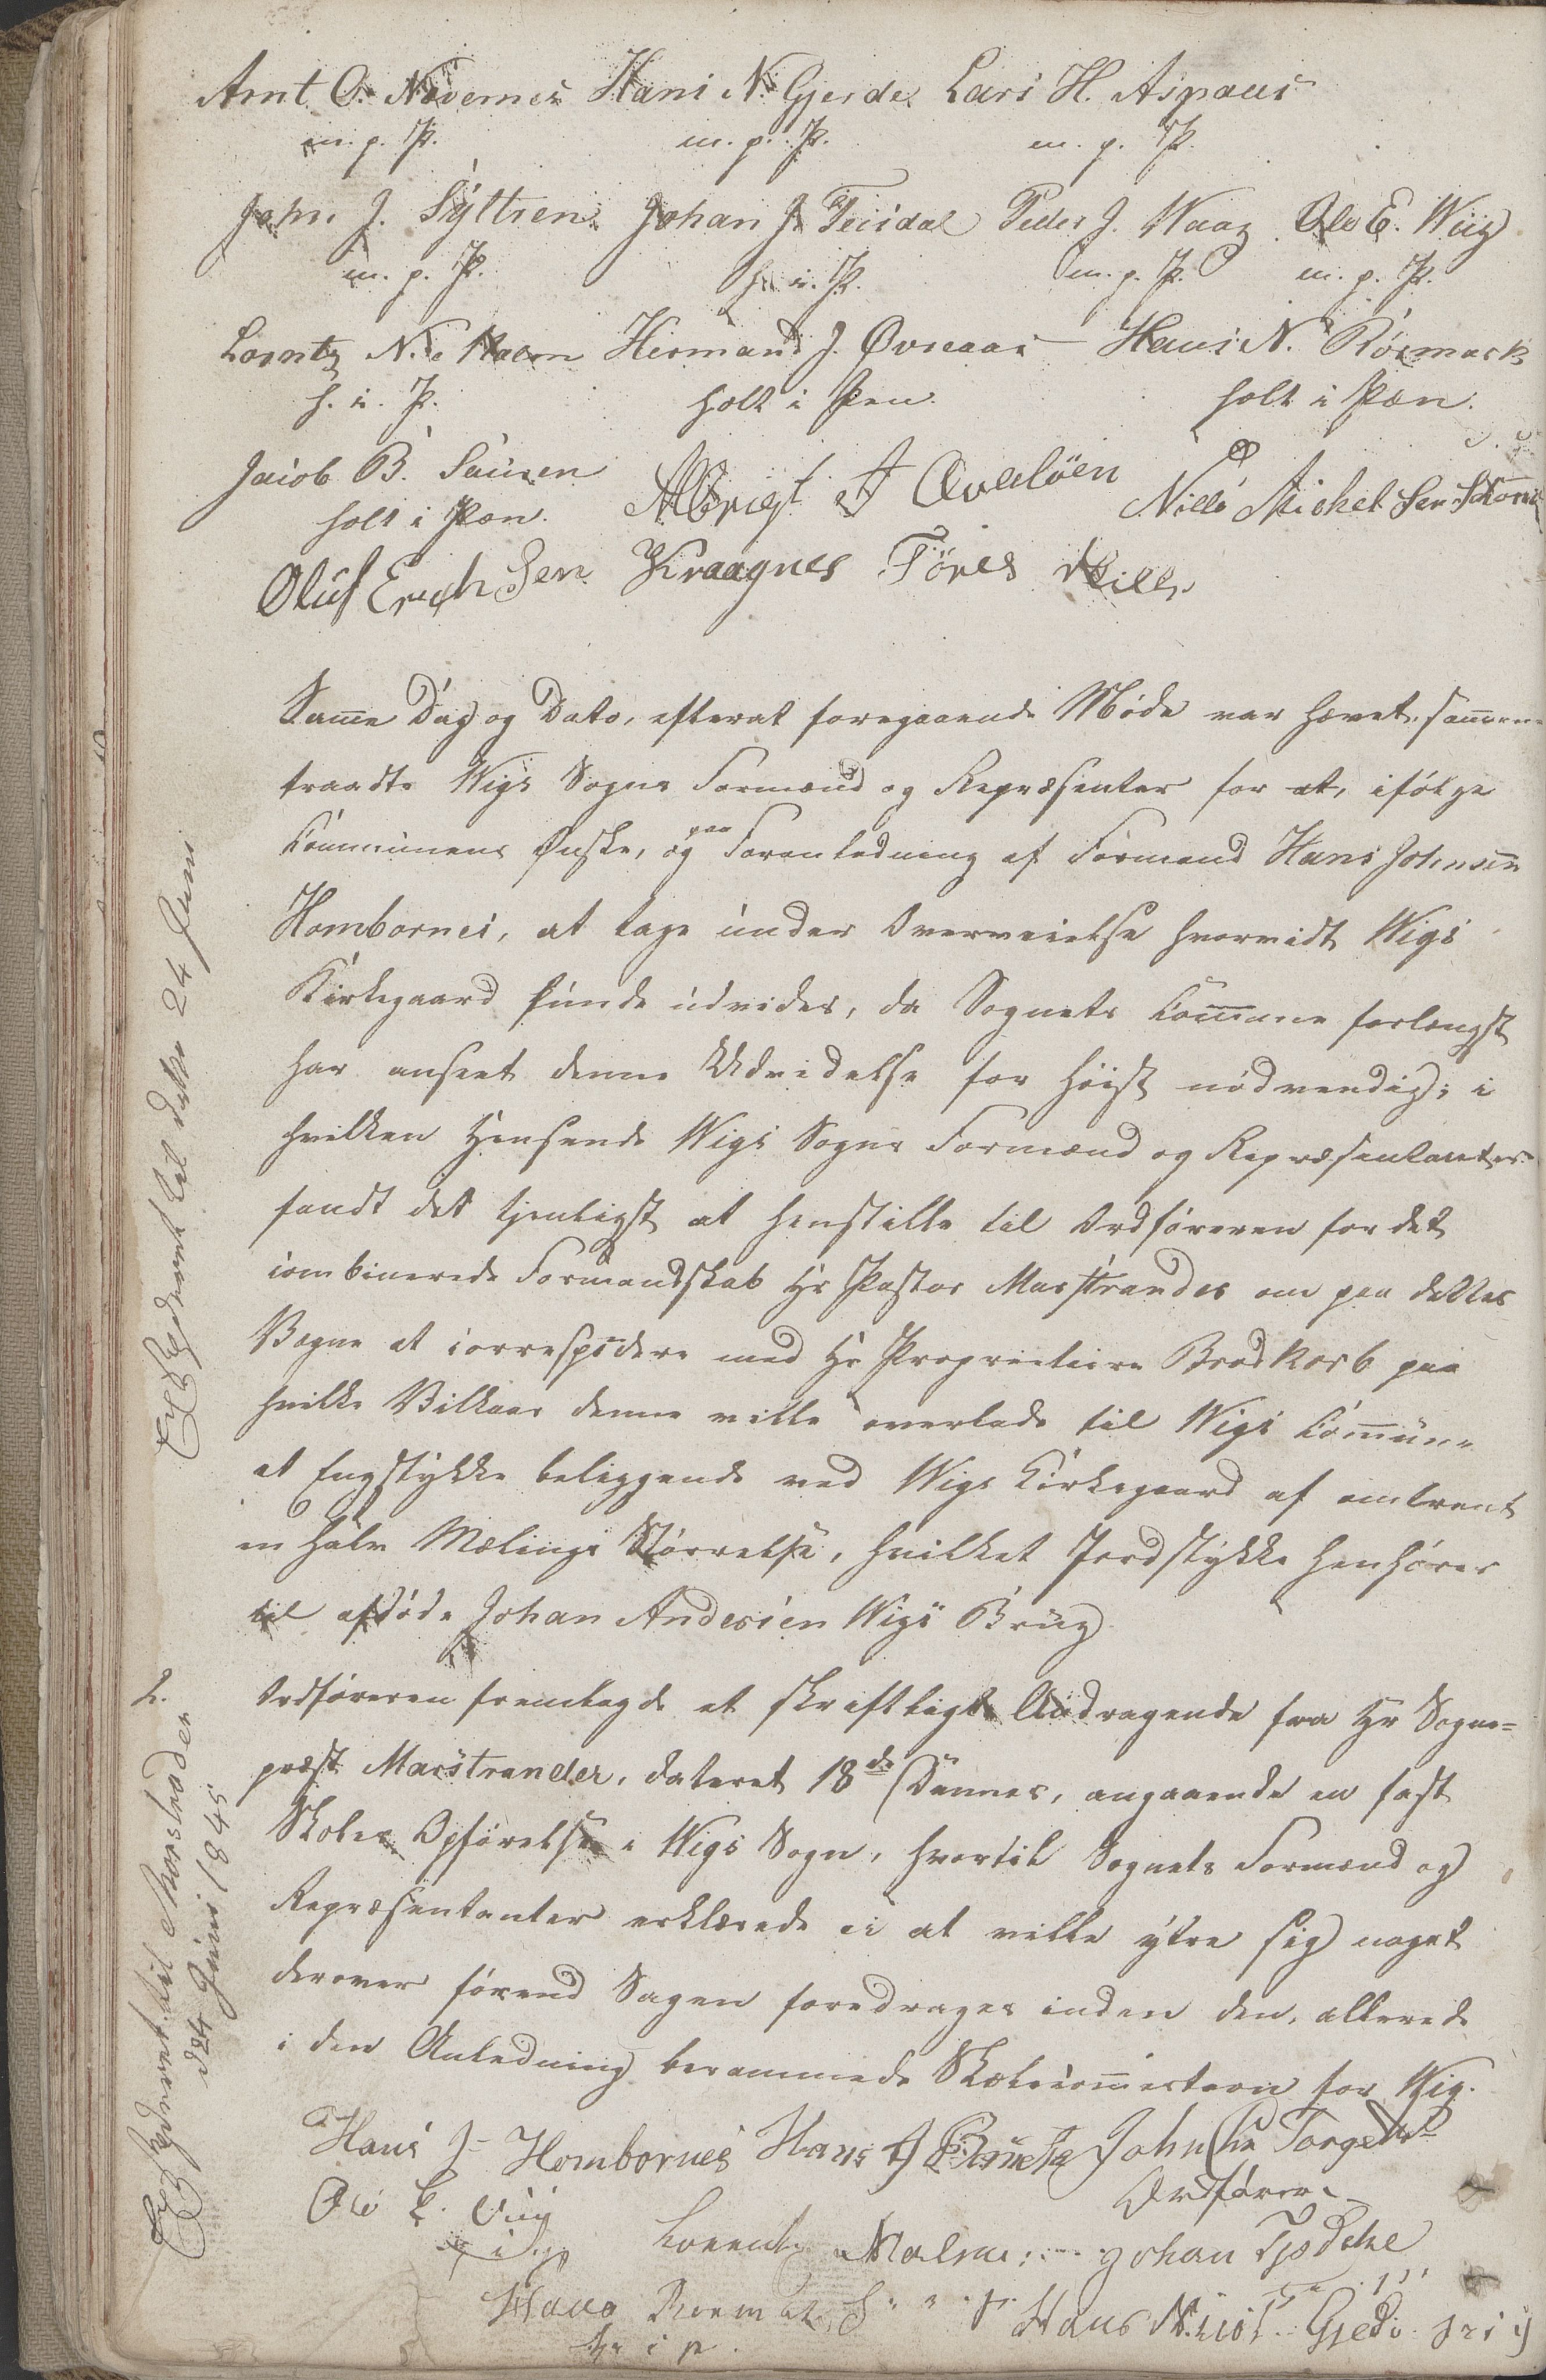 Arnt O. Nævernes Hans N. Gjerde Lars H. Aspaas
m. p. P. m. p. P. m. p. P.
John J. Syltren Johan J. Teisdal Peder J. Waag Ole E. Wiig
m. p. P. h. i. P. m. p. P. m. p. P.
Lorntz N. Malm Hermand J. Øvreaas Hans N. Rösmark
h. i. P. holt i Pen. holt i Pæn.
Jacob B. Sausen Albrigt J Avelöen Nills Michel Sen
holt i Pæn.
Oluf Erich Sen Kraagnes Töres Nills
Samme Dag og Dato, efterat foregaaende Møde var hævet, sammen-
traadte Wigs Sogns Formænd og Repræsenter for at, ifölge
Communens Ønske, og paa Foranledning af Formand Hans Johnsen
Hombornes, at tage under Overveielse hvorvidt Wigs
Kirkegaard kunde udvides, da Sognets Commune forlængst
har anseet denne Udvidelse for höist nödvendig; i
hvilken Henseende Wigs Sogns Formænd og Repræsentanter
fandt det tjenligst at henstille til Ordföreren for det
combinerede Formandskab Hr Pastor Marstrander om paa dettes
Vegne at correspodere med Hr Proprietaire Brodkorb paa
hvilke Vilkaar denne ville overlade til Wigs Commune
et Engstykke beliggende ved Wigs Kirkegaard af omtrent
en halv Mælings Störrelse, hvilket Jordstykke henhörer
til afdöde Johan Andersen Wigs Brug
2. Ordföreren fremlagde et skriftligt Andragende fra Hr Sogne-
præst Marstrander, dateret 18de Dennes, angaaende en fast
Skoles Opförelse i Wigs Sogn, hvortil Sognets Formænd og
Repræsentanter erklærede ei at ville ytre sig noget
derover förend Sagen foredrages inden den, allerede
i den Anledning berammede Skolecommision for Wig.
Hans J. Hombornes Hans J John Chr Torget
Ordförer
Ole E. Viig Lorentz Malm Johan
Hans Rosmark Hans N. Gjede
h i p.
Expederet til dette 24 Juni
Expederet til Marstrander
d 24 Juni 1845